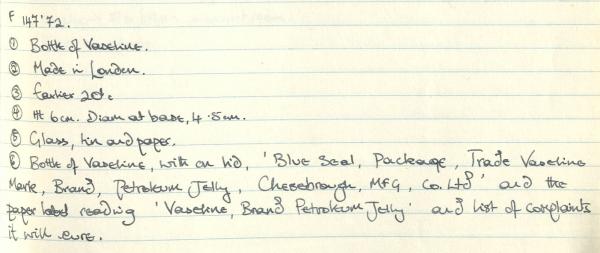 F 147'72.
① Bottle of Vaseline.
② Made in London.
③ Earlier 20th c
④ Ht 6cm. Diam at base, 4.5cm.
⑤ Glass, tin and paper.
⑥ Bottle of Vaseline, with on lid, 'Blue Seal, Package, Trade Vaseline
Mark, Brand, Petroleum Jelly, Chesebrough, MFG, Co. Ltd' and the
paper label reading 'Vaseline, Brand Petroleum Jelly' and list of complaints
it will cure.